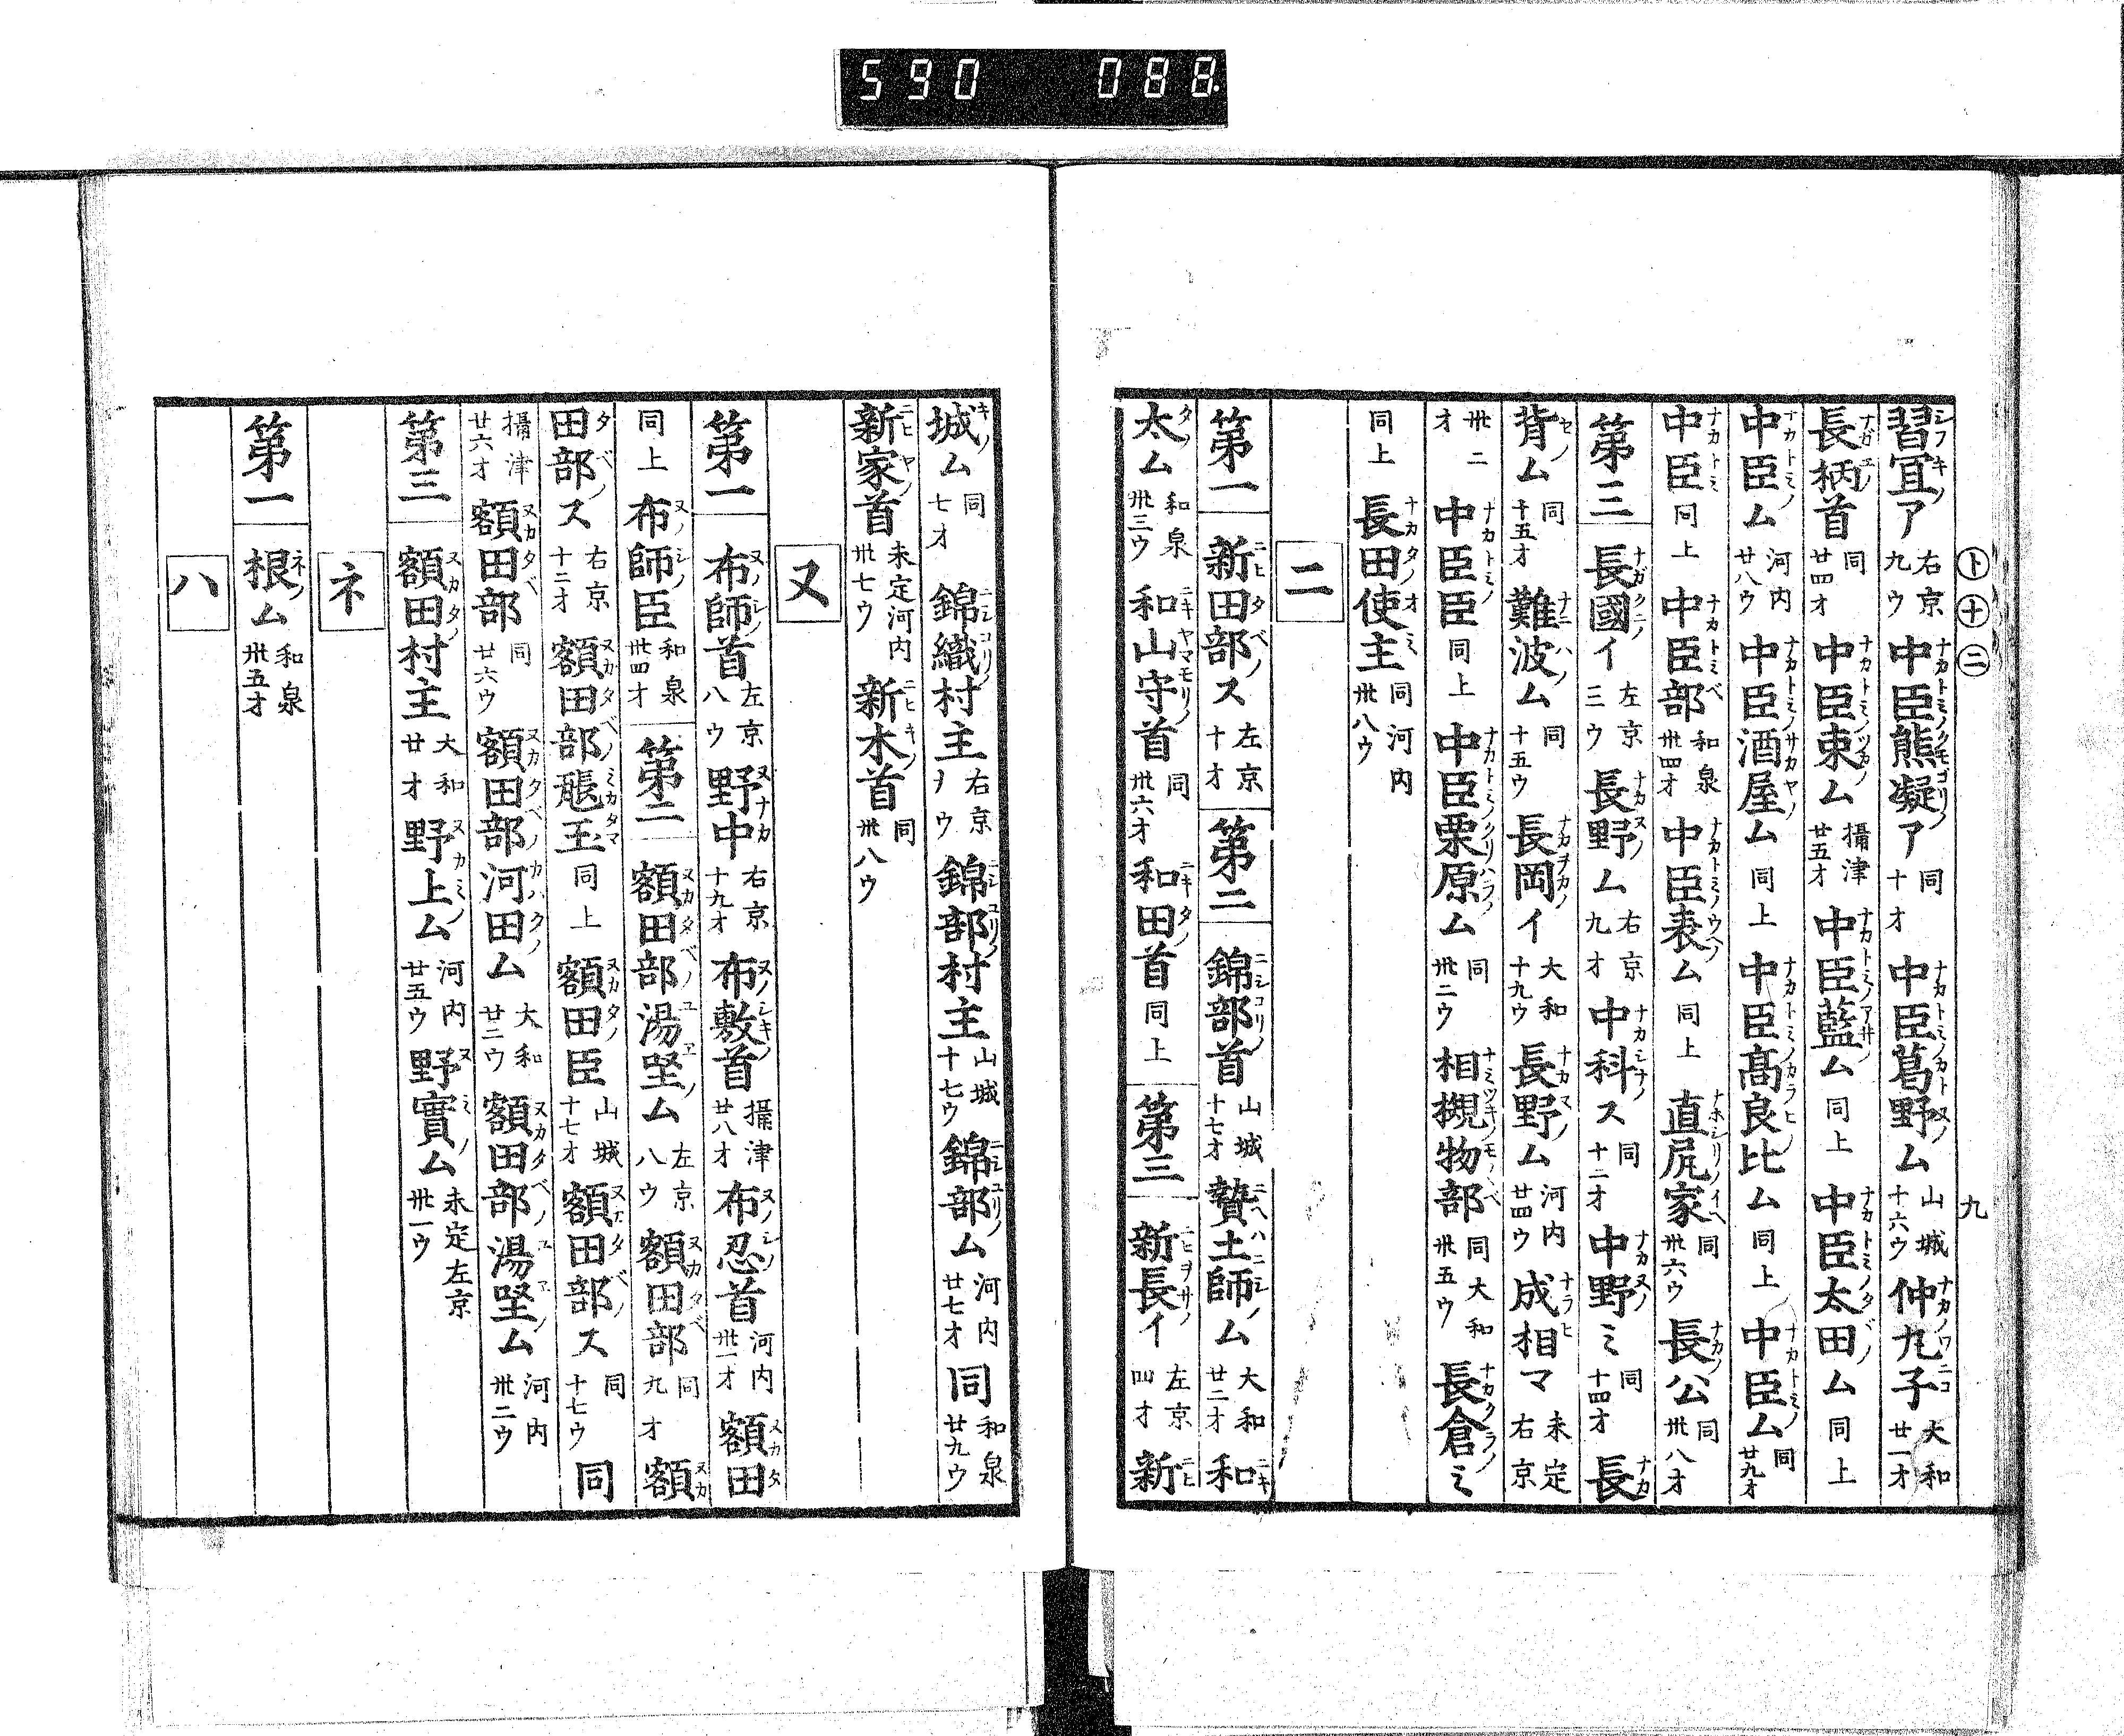 590 088
㋣㊉㊁ 九
習宜ア 右京九ウ 中臣熊凝ア 同十オ 中臣葛野ム 山城十六ウ 仲丸子 大和廿一オ
長柄首 同廿四オ 中臣束ム 攝津廿五オ 中臣藍ム 同上 中臣太田ム 同上
中臣ム 河内廿八ウ 中臣酒屋ム 同上 中臣髙良比ム 同上 中臣ム 同廿九オ
中臣 同上 中臣部 和泉卅四オ 中臣表ム 同上 直尻家 同卅六ウ 長公 同卅八オ
第三 長國イ 左京三ウ 長野ム 右京九オ 中科ス 同十二オ 中野ミ 同十四オ 長
背ム 同十五オ 難波ム 同十五ウ 長岡イ 大和十九ウ 長野ム 河内廿四ウ 成相マ 未定右京
卅二オ 中臣臣 同上 中臣栗原ム 同卅二ウ 相槻物部 同大和卅五ウ 長倉ミ
同上 長田使主 同河内卅八ウ
ニ
第一 新田部ス 左京十オ 第二 錦部首 山城十七オ 贄土師ム 大和廿二オ 和
太ム 和泉卅三ウ 和山守首 同卅六オ 和田首 同上 第三 新長イ 左京四オ 新
城ム 同七オ 錦織村主 右京ヲウ 錦部村主 山城十七ウ 錦部ム 河内廿七オ 同 和泉廿九ウ
新家首 未定河内卅七ウ 新木首 同卅八ウ
ヌ
第一 布師首 左京八ウ 野中 右京十九オ 布敷首 攝津廿八オ 布忍首 河内卅一オ 額田
同上 布師臣 和泉卅四オ 第二 額田部湯坙ム 左京八ウ 額田部 同九オ 額
田部ス 右京十二オ 額田部𤭖玉 同上 額田臣 山城十七オ 額田部ス 同十七ウ 同
攝津廿六オ 額田部 同廿六ウ 額田部河田ム 大和廿二ウ 額田部湯坙ム 河内卅二ウ
第三 額田村主 大和廿オ 野上ム 河内廿五ウ 野實ム 未定左京卅一ウ
ネ
第一 根ム 和泉卅五オ
ハ